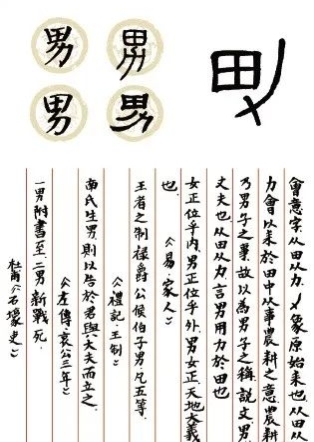 男 男
男 男
男
會意字.从田从力.乂象原始耒也.从田从
力會以耒於田中从事農耕之意.農耕
乃男子之事.故以為男子之稱.說文.男.
丈夫也.从田从力.言男用力於田也
女正位乎內.男正位乎外.男女正.天地大義
也.《易.家人》
王者之制祿爵公侯伯子男凡五等.
《禮記.王制》
南氏生男.則以告於君與大夫而立之.
《左傳.哀公三年》
一男附書至.二男新戰死.
杜甫《石壕吏》